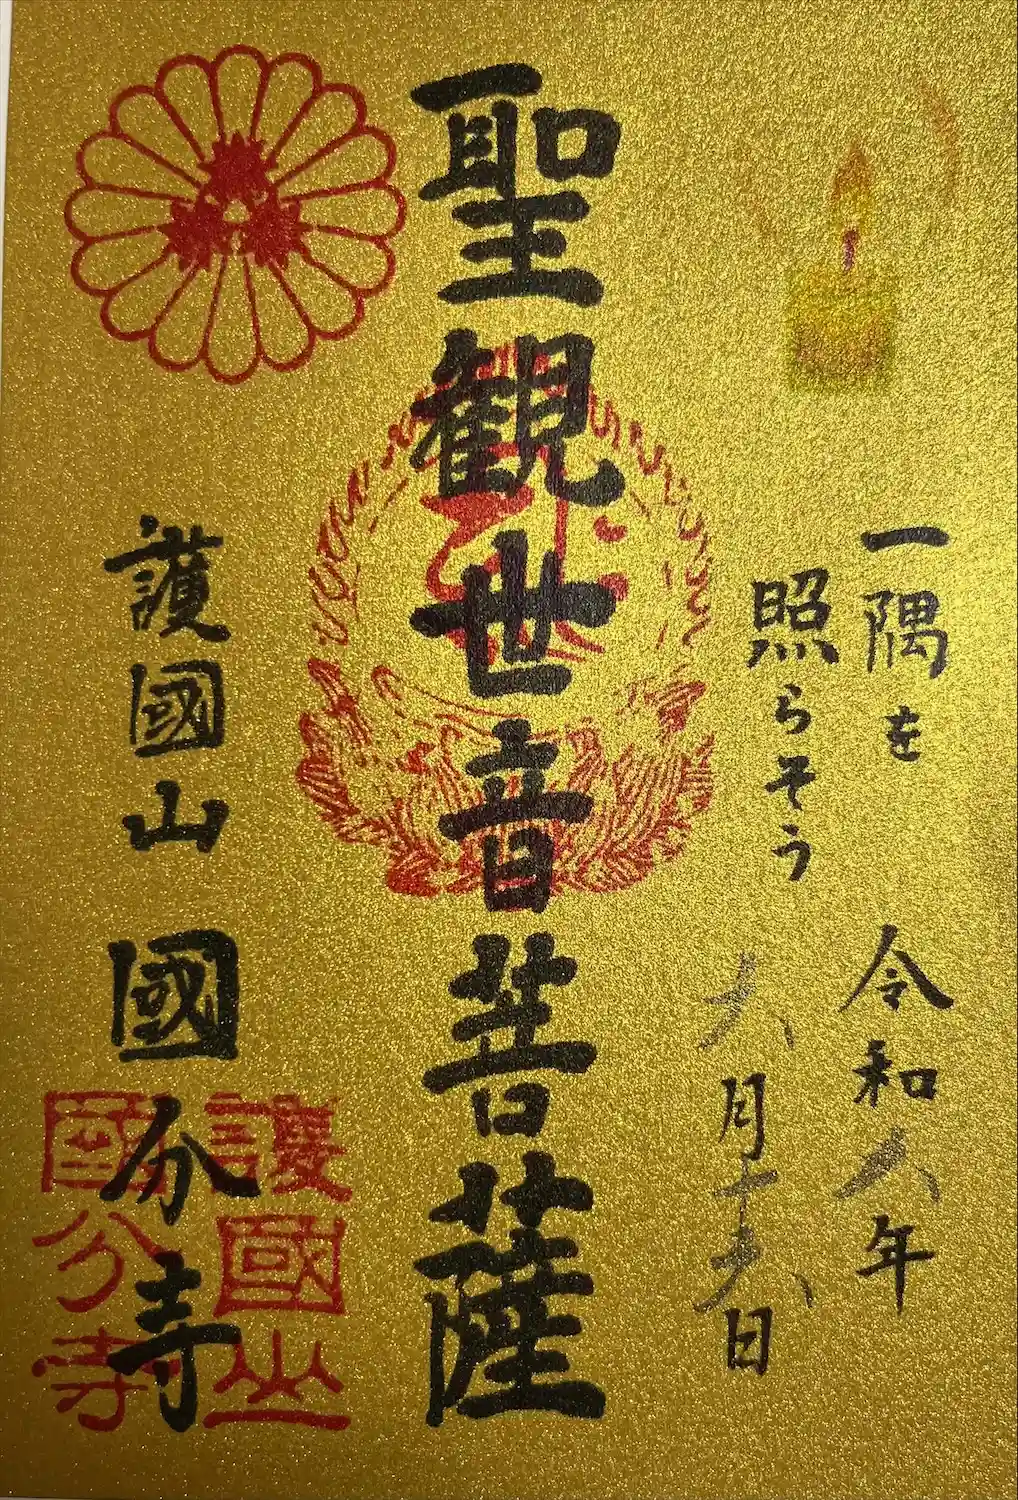 一隅を
照らそう
令和八年
六月十六日
聖観世音菩薩
護國山 國分寺
護國山
國分寺